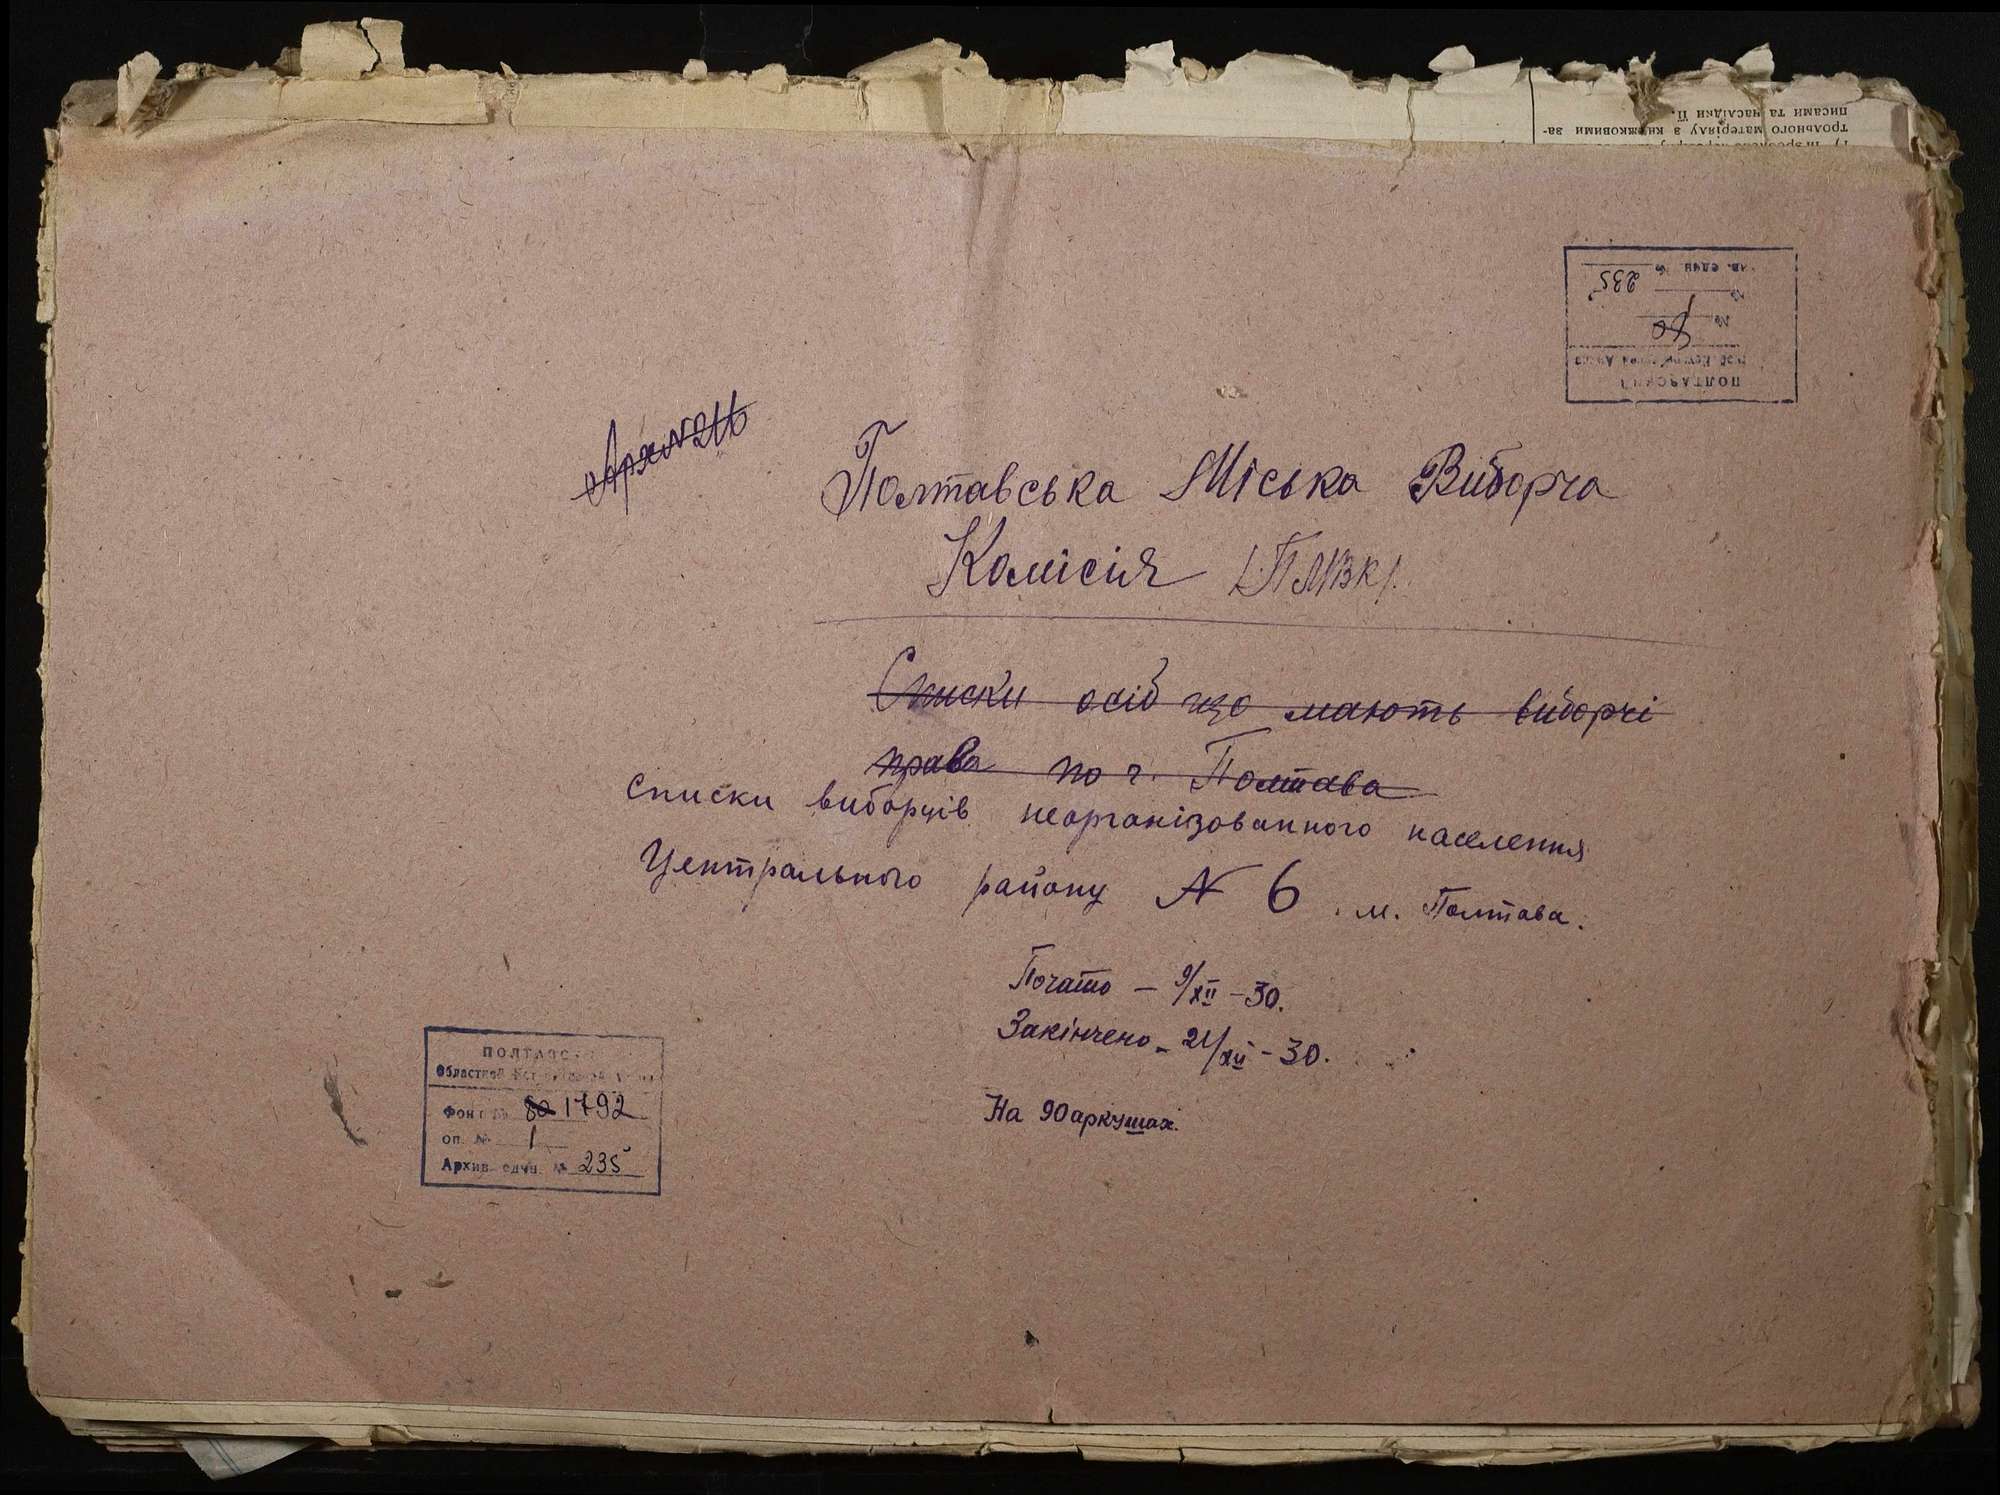 трольного матеріялу з книжковими за-
писами та наслідки її.
ПОЛТАВСКИЙ
№ 80
№ 1
ив. един № 235
Арх N 216
Полтавська Міська Виборча
Комісія /ПМВК/.
Списки осіб що мають виборчі
права по г. Полтава
Списки виборців неорганізованного населення
Центрального району N 6 м. Полтава.
Почато – 9/XII – 30.
Закінчено – 21/XII – 30.
На 90 аркушах.
ПОЛТАВС
Областной
Фонд № 80 1792
оп. № 1
Архив. един. № 235